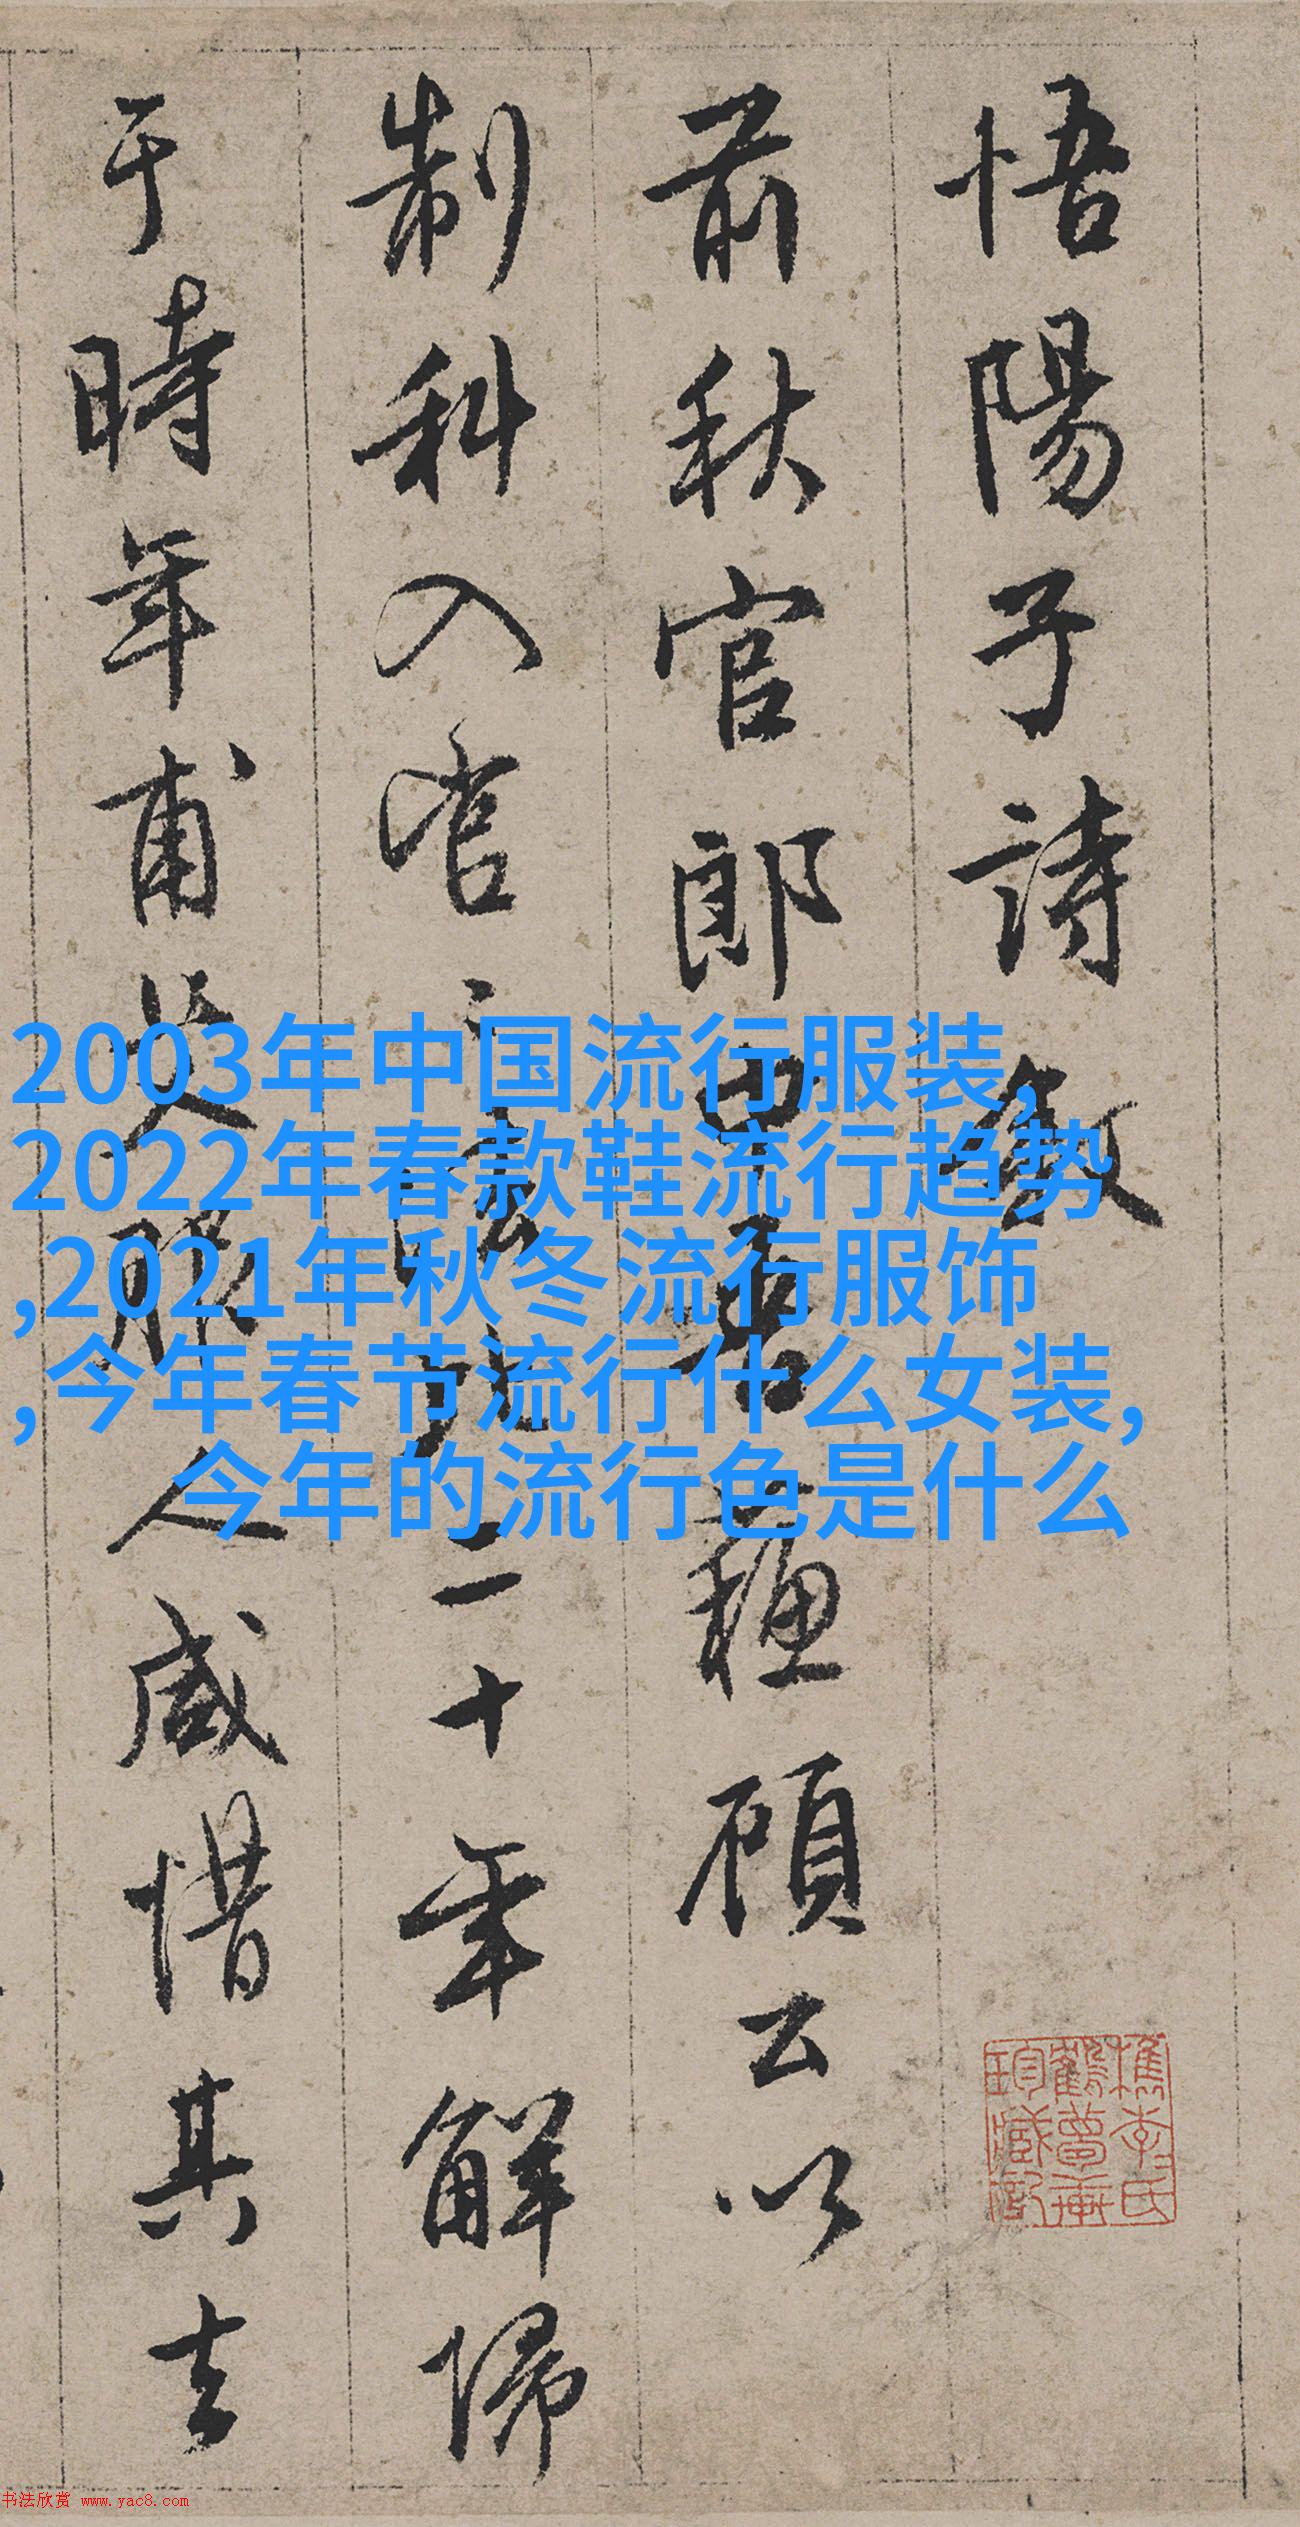 悟陽子詩敘
前秋官郎中晋菴顧公以
制科入官
二十年解歸
于時年甫艾服人咸惜其去
2003年中国流行服装,
2022年春款鞋流行趋势
,2021年秋冬流行服饰
,今年春节流行什么女装,
今年的流行色是什么
书法欣赏 www.yac8.com